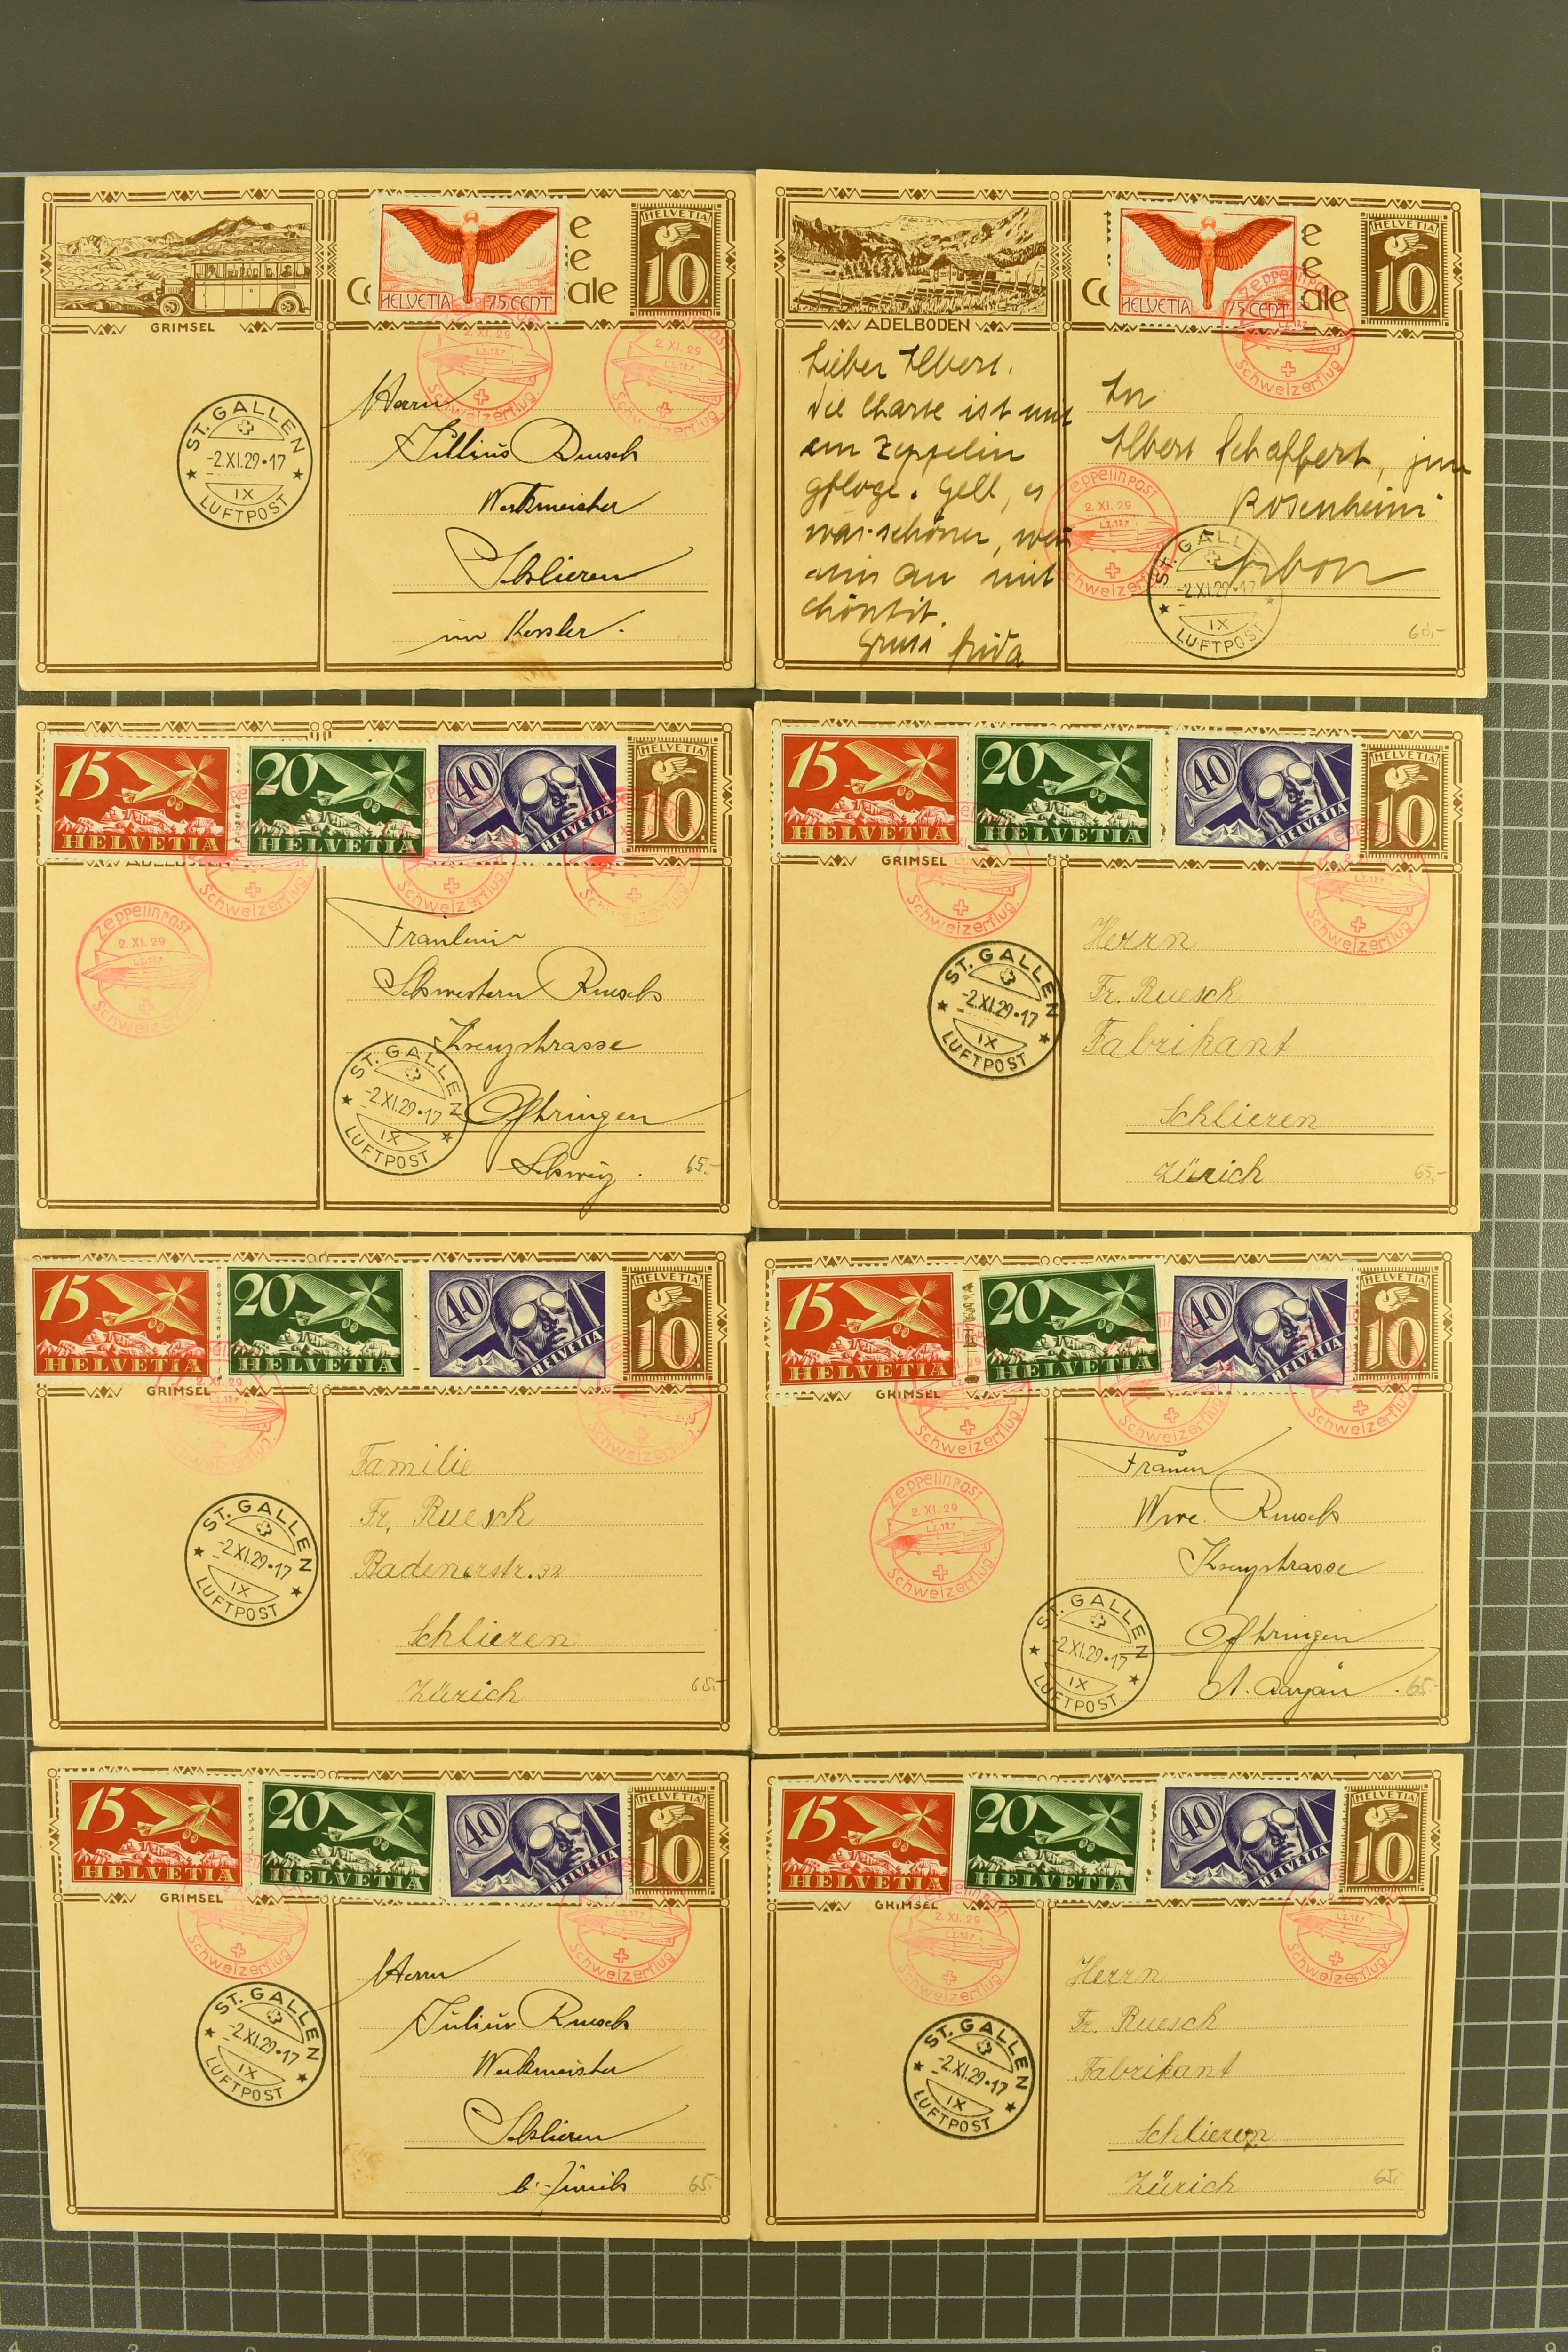 HELVETIA
10
e
e
Co ale
HELVETIA 75 CENT.
GRIMSEL
2. XI. 29
LZ.127
Schweizerflug.
2. XI. 29
LZ.127
Schweizerflug.
ST. GALLEN
-2.XI.29•17
IX
LUFTPOST
Herrn
Ruesch
Werkmeister
Schlieren
im Kessler.
HELVETIA
10
e
e
Co ale
HELVETIA 75 CENT.
ADELBODEN
Zeppelinpost
Schweizerflug.
Lieber Albert.
die Charte ist mit
em Zeppelin
gfloge. Gell, es
wär schöner, wen
mit
chöntist.
Gruss Frida
An
Albert Schaffert, jun
Rosenheim
Arbon
Zeppelinpost
2. XI. 29
LZ.127
Schweizerflug.
ST. GALLEN
-2.XI.29•17
IX
LUFTPOST
60.-
15
HELVETIA
20
HELVETIA
40
HELVETIA
HELVETIA
10
ADELBODEN
Schweizerflug.
Schweizerflug.
Schweizerflug.
Zeppelinpost
2. XI. 29
LZ.127
Schweizerflug.
Fräulein
Schwestern Ruesch
Kreuzstrasse
Oftringen
Schweiz.
ST. GALLEN
-2.XI.29•17
IX
LUFTPOST
65.-
15
HELVETIA
20
HELVETIA
40
HELVETIA
HELVETIA
10
GRIMSEL
Schweizerflug.
Zeppelinpost
LZ.127
Schweizerflug.
ST. GALLEN
-2.XI.29•17
IX
LUFTPOST
Herrn
Fr. Ruesch
Fabrikant
Schlieren
Zürich
65.-
15
HELVETIA
20
HELVETIA
40
HELVETIA
HELVETIA
10
GRIMSEL
2. XI. 29
LZ.127
Schweizerflug.
Schweizerflug.
ST. GALLEN
-2.XI.29•17
IX
LUFTPOST
Familie
Fr. Ruesch
Badenerstr. 32
Schlieren
Zürich
65.-
15
HELVETIA
20
HELVETIA
40
HELVETIA
HELVETIA
10
GRIMSEL
Schweizerflug.
Schweizerflug.
Schweizerflug.
Zeppelinpost
2. XI. 29
LZ.127
Schweizerflug.
Frauen
Wwe. Ruesch
Kreuzstrasse
Oftringen
Kt. Aargau.
ST. GALLEN
-2.XI.29•17
IX
LUFTPOST
65.-
15
HELVETIA
20
HELVETIA
40
HELVETIA
HELVETIA
10
GRIMSEL
Schweizerflug.
Schweizerflug.
ST. GALLEN
-2.XI.29•17
IX
LUFTPOST
Herrn
Julius Ruesch
Werkmeister
Schlieren
b. Zürich
65.-
15
HELVETIA
20
HELVETIA
40
HELVETIA
HELVETIA
10
GRIMSEL
2. XI. 29
LZ.127
Schweizerflug.
LZ.127
Schweizerflug.
ST. GALLEN
-2.XI.29•17
IX
LUFTPOST
Herrn
Fr. Ruesch
Fabrikant
Schlieren
Zürich
65.-